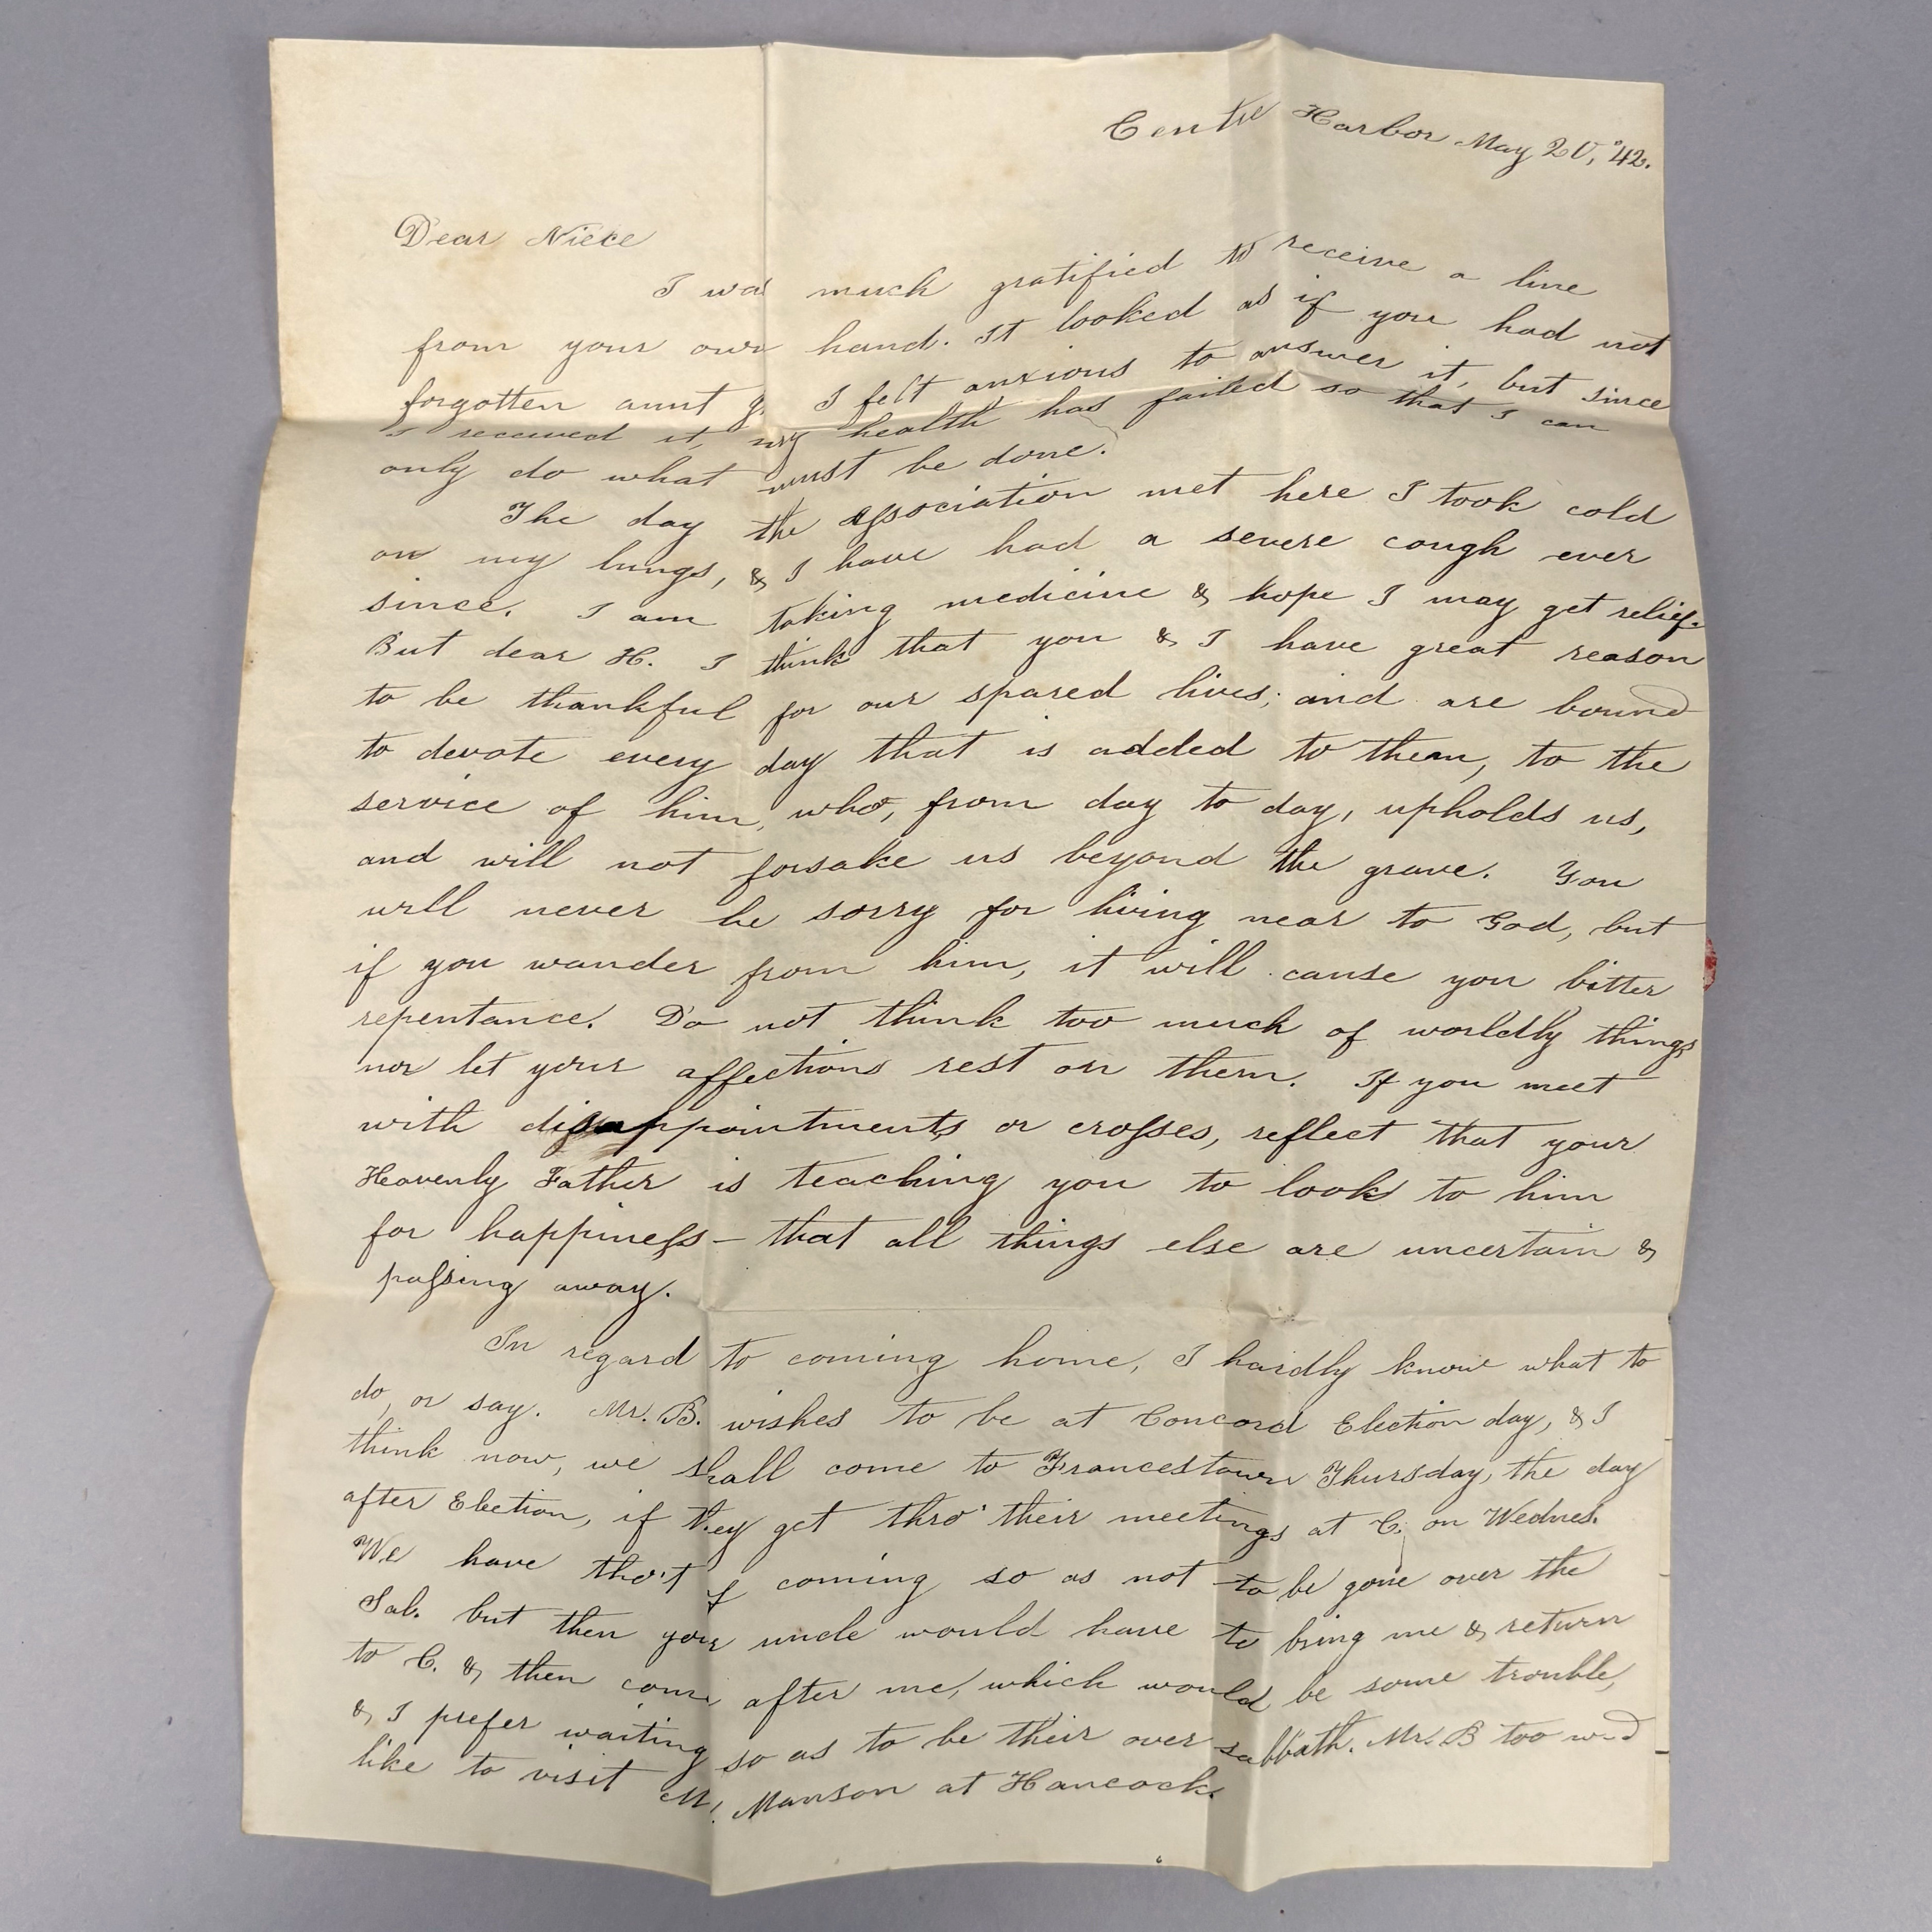 Centre Harbor May 20, '42.
Dear Niece
I was much gratified to receive a line
from your own hand. It looked as if you had not
forgotten aunt G. I felt anxious to answer it, but since
I received it, my health has failed so that I can
only do what must be done.
The day the Association met here I took cold
on my lungs, & I have had a severe cough ever
since. I am taking medicine & hope I may get relief.
But dear H. I think that you & I have great reason
to be thankful for our spared lives; and are bound
to devote every day that is added to them, to the
service of him, who, from day to day, upholds us,
and will not forsake us beyond the grave. You
will never be sorry for living near to God, but
if you wander from him, it will cause you bitter
repentance. Do not think too much of worldly things
nor let your affections rest on them. If you meet
with disappointments or croſses, reflect that your
Heavenly Father is teaching you to look to him
for happineſs – that all things else are uncertain &
paſsing away.
In regard to coming home, I hardly know what to
do, or say. Mr. B. wishes to be at Concord Election day, & I
think now, we shall come to Francestown Thursday, the day
after Election, if they get thro' their meetings at C. on Wednes.
We have tho't of coming so as not to be gone over the
Sab. but then your uncle would have to bring me & return
to C. & then come after me, which would be some trouble,
& I prefer waiting so as to be their over sabbath. Mr. B too wd
like to visit Mr. Manson at Hancock.